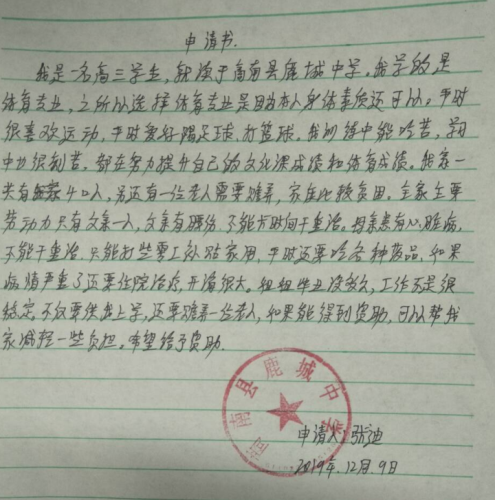 申请书.
我是一名高三学生，就读于商南县鹿城中学。我学的是
体育专业，之所以选择体育专业是因为本人身体素质还可以。平时
很喜欢运动，平时爱好踢足球、打篮球。我训练中能吃苦，学习
中也很刻苦，都在努力提升自己的文化课成绩和体育成绩。我家一
共有4口人，另还有一位老人需要赡养，家庭比较贫困。全家主要
劳动力只有父亲一人，父亲有腰伤，不能长时间干重活。母亲患有心脏病，
不能干重活，只能打些零工补贴家用，平时还要吃各种药品，如果
病情严重了还要住院治疗，开销很大。姐姐毕业没多久，工作不是很
稳定，不仅要供我上学，还要赡养一位老人，如果能得到资助，可以帮我
家减轻一些负担。希望给予资助.
商南县鹿城中学
申请人：张迪
2019年.12月.9日